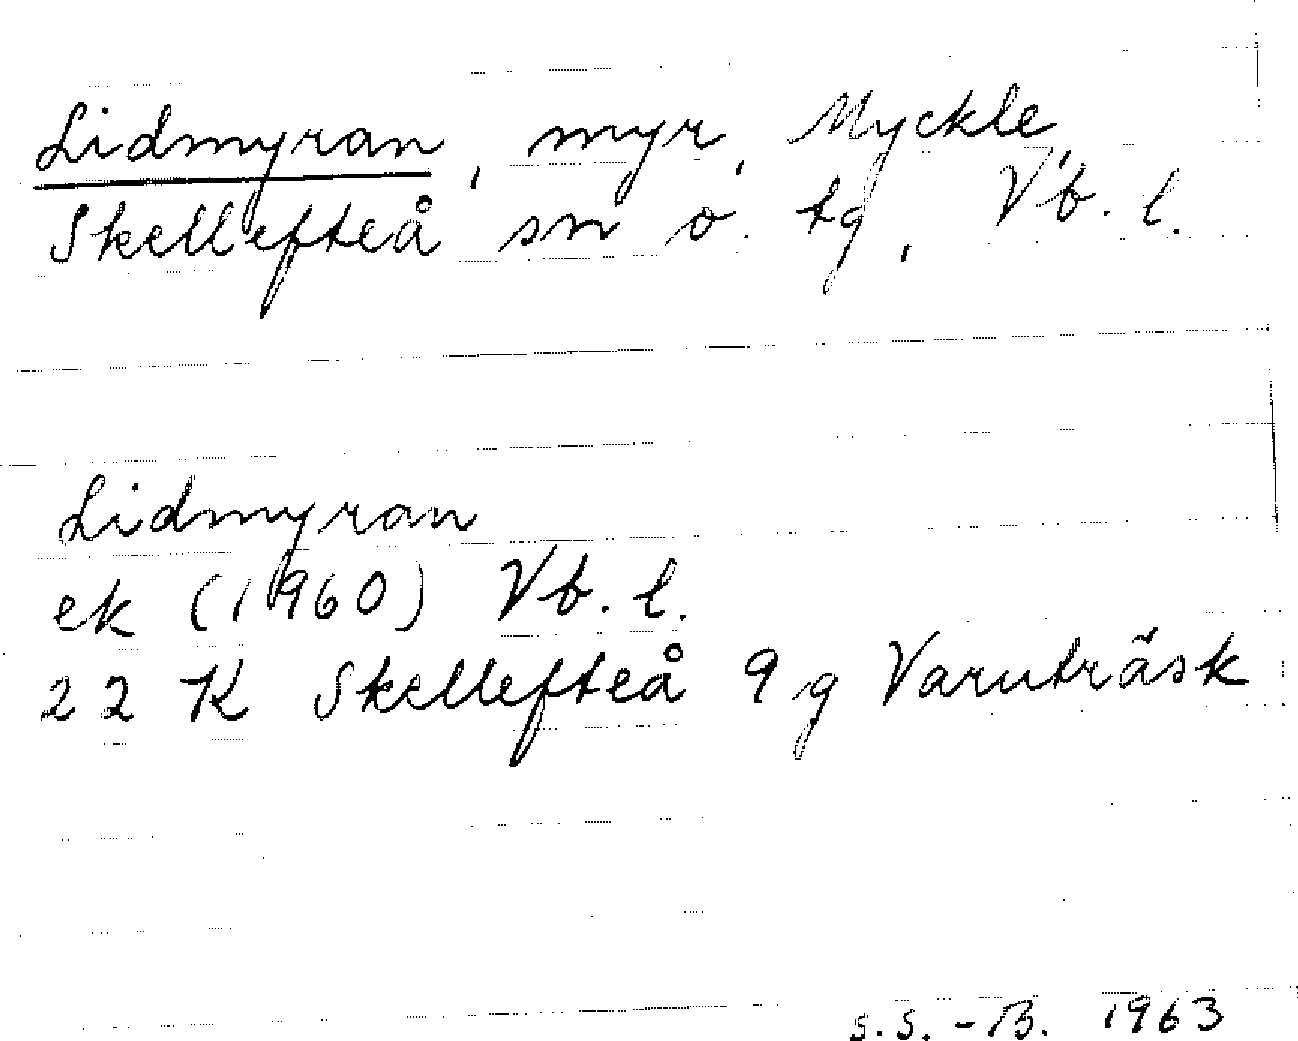 Lidmyran, myr, Myckle,
Skellefteå sn o. tg, Vb. l.
Lidmyran
ek (1960) Vb. l.
22 K Skellefteå 9 g Varuträsk
S.S.-B. 1963